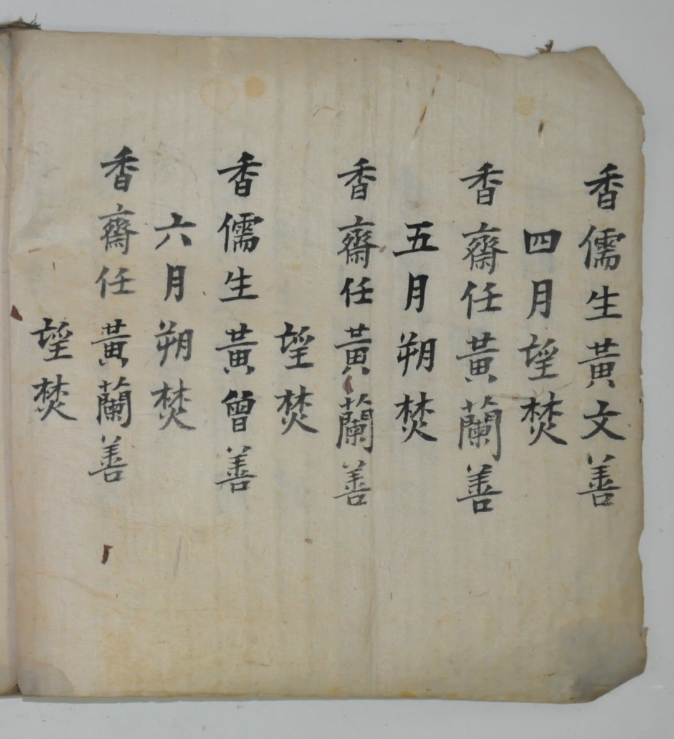 香儒生黃文善
四月望焚
香齋任黃蘭善
五月朔焚
香齋任黃蘭善
望焚
香儒生黃曾善
六月朔焚
香齋任黃蘭善
望焚